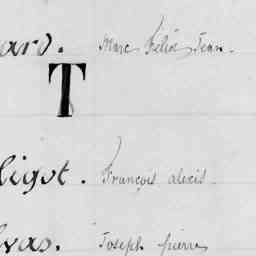 ard. Marc Félix Jean.
T
ligot. François alexis
vas. Joseph pierre